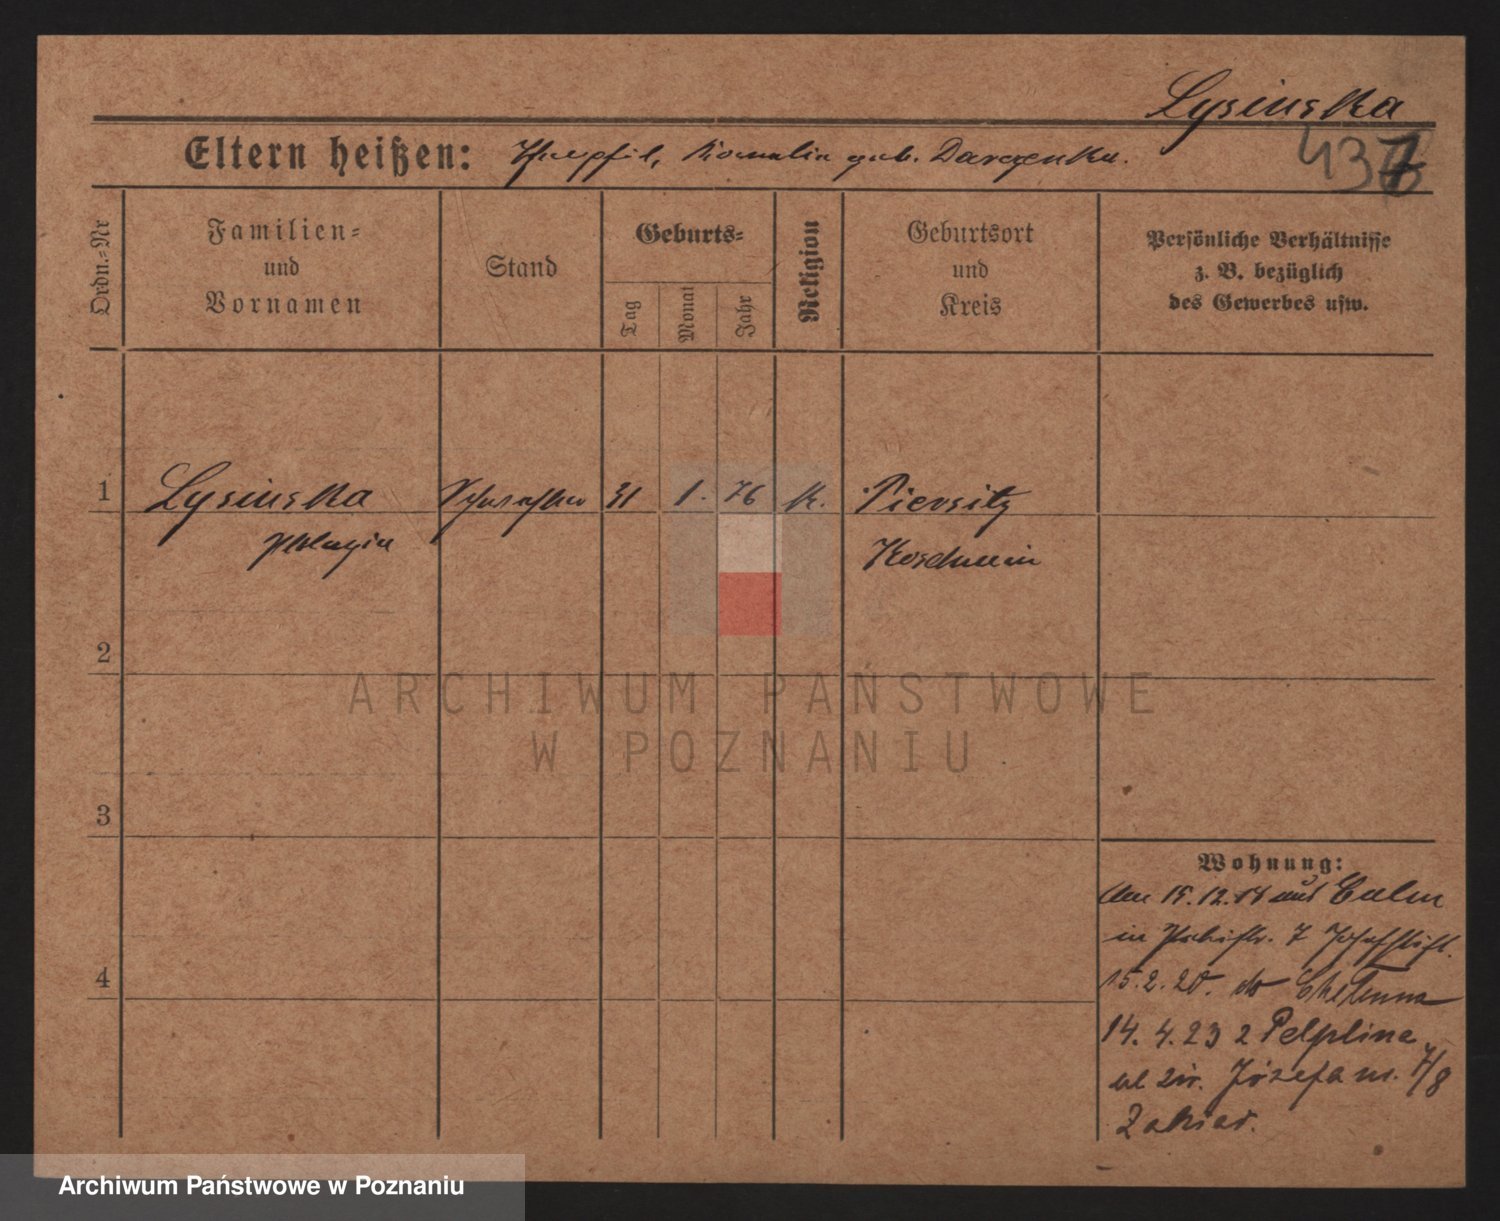 Lysinska
437
Eltern heißen: Theophil, Kornelia geb. Darczenka.
Ordn.-Nr
Familien-
und
Vornamen
Stand
Geburts-
Tag
Monat
Jahr
Religion
Geburtsort
und
Kreis
Persönliche Verhältnisse
z. B. bezüglich
des Gewerbes usw.
1
Lysinska
Schwester
31
1.
76
k.
Piersitz
Pelagia
Koschmin
2
ARCHIWUM PAŃSTWOWE
W POZNANIU
3
Wohnung:
Am 15.12.18 aus Culm
in Petristr. 7 Josefstift.
15.2.20. do Chełmna
14. 4. 23 z Pelplina
ul św. Józefa nr. 7/8
Zakład.
4
Archiwum Państwowe w Poznaniu